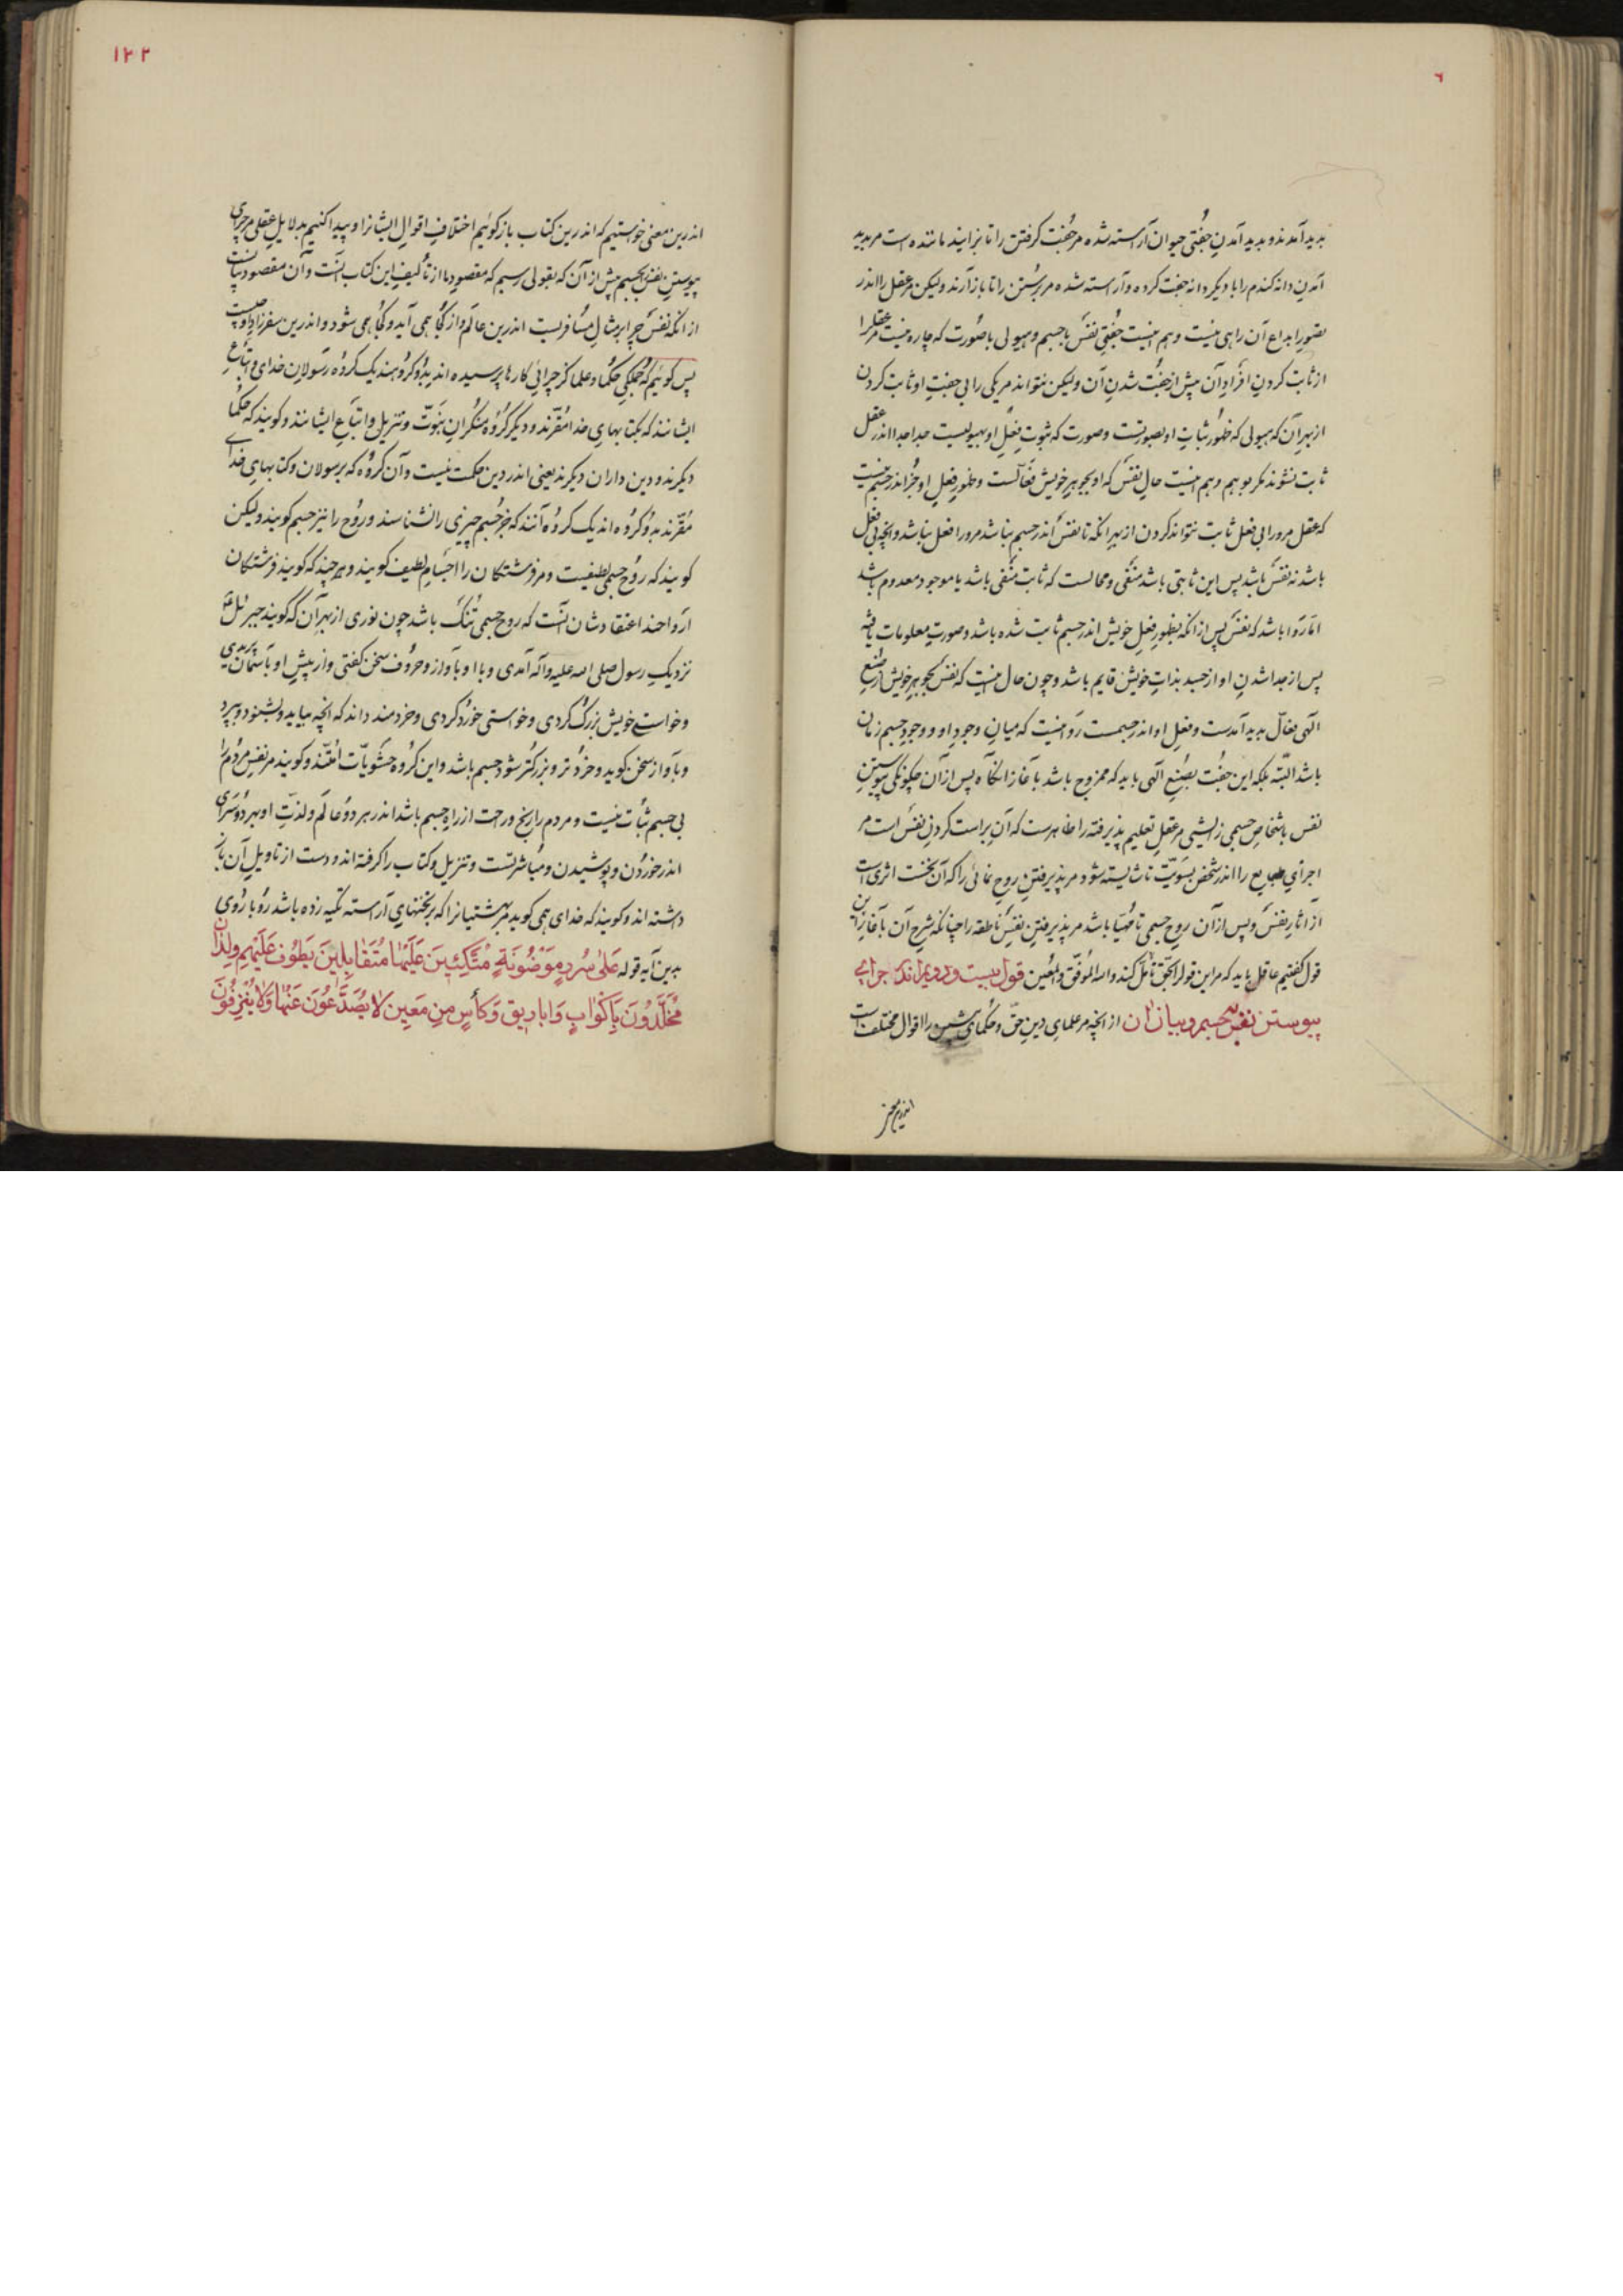 ۶
پدید آمدند و پدید آمدنِ جُفتی حیوان آراسته شده مر جُفت کرفتن را تا بزایند ماننده است مر پدید
آمدنِ دانه کندم را با دیکر دانه جفت کرده و آراسته شده مر برُستن را تا باز آرند ولیکن مر عقل را اندر
تصورِ ابداع آن راهی نیست و هم اینست جُفتیِ نفسَ با جسم و هیولی با صُورت که چاره نیست مر عقل را
از ثابت کردنِ افرادِ آن پیش از جفُت شدنِ آن ولیکن نتواند مر یکی را بی جفتِ او ثابت کردن
از بهرِ آن که هیولی که ظهورِ ثباتِ او بصورتست و صورت که ثبوتِ فِعلِ او بهیولیست جدا جدا اندر عقل
ثابت نشوند مکر بوهم و هم اینست حالِ نفسَ که او بجوهرِ خویش فعّالست و ظهورِ فعلِ او جُز اندر جسم نیست
که عقل مرورا بی فعل ثابت نتواند کردن از بهرِ انکه تا نفسَ اندر جسم نباشد مرورا فعل نباشد و انچه بی فعل
باشد نه نفسَ باشد پس این ثابتی باشد منفَی و محالست که ثابت منفَی باشد یا موجود معدوم باشد
امّا روَا باشد که نفسَ پس از انکه بظهورِ فعلِ خویش اندر جسم ثابت شده باشد و صورتِ معلومات یافته
پس از جدا شدنِ او از جسد بذاتِ خویش قایم باشد و چون حال اینست که نفس بجوهرِ خویش از صُنعِ
الهی فعّال پدید آمدست و فعلِ او اندر جسمست رَوا نیست که میانِ وجودِ او و وجودِ جسم زمان
باشد البتّه بلکه این جفُت بصُنعِ الهی باید که ممزوج باشد بآغاز انکاه پس از آن چکونکی پیوستنِ
نفس باشخاصِ جسمی زایشی مر عقلِ تعلیم پذیرفته را ظاهرست که آن براست کردنِ نفسَ است مر
اجزایِ طبایع را اندر شخص بسَویّت تا شایسته شود مر پذیرفتنِ روحِ نمائی را که آن نخست اثری است
از آثارِ نفسَ و پس از آن روحِ حسی تا مُهیّا باشد مر پذیرفتنِ نفسِ ناطقه را چنانکه شرحِ آن بآغازِ این
قول کفتیم عاقل باید که مر این قول را بحقّ تأمّل کند و الله المُوفّق و المُعین قول بیست و دویم اندر چرایی
پیوستن نفس بجسم و بیان ان از انچه مر علمایِ دینِ حقّ و حُکمایِ پیشین را اقوال مختلفست
اندرین معنی
۱۲۲
اندرین معنی خواستیم که اندرین کتاب باز کوئیم اختلافِ اقوالِ ایشانرا و پیدا کنیم بدلایلِ عقلی مر چرایِ
پیوستنِ نفس بجسم پیش از آن که بقولی رسیم که مقصودِ ما از تألیفِ این کتاب آنست و آن مقصود بیانست
از انکه نفسَ چرا بر مثالِ مسُافریست اندرین عالم و از کجُا همی آید و کجُا همی شود و اندرین سفر زادِ او چیست
پس کوئیم که جُملکیِ حکُما و علما کز چرائیِ کارها پرسیده اند بدُو کروُهند یک کروُه رسُولانِ خدای و اتباَعِ
ایشانند که بکتابهایِ خدا مُقرّند و دیکر کروُه منکرانِ نبُوتّ و تنزیل و اتباَعِ ایشانند و کویند که حُکما
دیکرند و دین داران دیکرند یعنی اندر دین حکمت نیست و آن کروُه که برسولان و کتابهایِ خدای
مُقرّند بدُو کروُه اند یک کروُه آنند که جُز جسم چیزی را نشناسند و روُح را نیز جسم کویند ولیکن
کویند که روُح جسمی لطیفست و مر فرشتکان را اجسَامِ لطیف کویند و هر چند که کویند فرشتکان
ارواحند اعتقادشان آنست که روح جسمی تُنُک باشد چون نوری از بهرِ آن که کویند جبرئیل ع
نزدیکِ رسول صلی الله علیه و آله آمدی و با او بآواز و حروُف سخن کفتی و از پیشِ او بآسمان بر پریدی
و خواستی خویش بزرک کردی و خواستی خُورد کردی و خردمند داند که انچه بیاید و بشنود و بپرد
و بآواز سخن کوید و خرُد تر و بزرکتر شود جسم باشد و این کروُه حشَویّاتِ امُتند و کویند مر نفسِ مردُم را
بی جسم ثبُات نیست و مردم را رنج و راحت از راهِ جسم باشد اندر هر دوُ عالمَ و لذتّ او بهر دوُ سرَای
اندر خورُدن و پوشیدن و مُباشرتست و تنزیل و کتاب را کرفته اند و دست از تاویلِ آن باز
داشته اند و کویند که خدای همی کوید مر بهشتیانرا که بر تختهایِ آراسته تکیه زده باشد روُ با رُوی
بدین آیه قوله عَلیٰ سُررٍ مَوْضُونَةٍ مُتَّکِئِینَ عَلَیْهٰا مُتَقٰابِلِینَ یَطوُفُ عَلَیْهِمِ وِلدٰانٌ
مُخَلَّدُونَ بِاَکْوٰابٍ وَ اَبارِیقَ وَ کَأْسٍ مِنِ مَعِینٍ لاٰ یُصَدَّعُونَ عَنْهٰا وَ لاٰ یُنْزِفُونَ